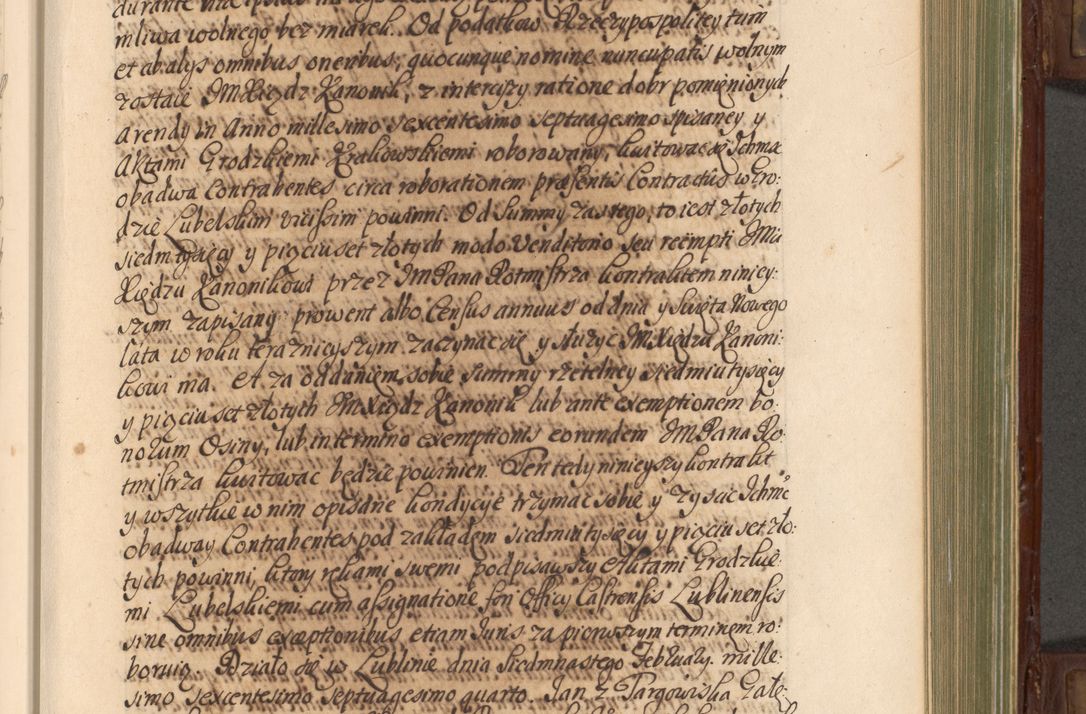 mliwa wolnego bez miarek. Od podatkow Rzeczypospolitey tum
et ab alys omnibus oneribus, quocunque nomine nuncupatis wolnym
zostaie JMXiądz Kanonik, z intercyzy ratione dobr pomięnionych
arendy in Anno millesimo sexcentesimo septuagesimo spisaney y
Aktami Grodzkiemi Krakowskiemi roborowany, kwitować się Ichmć
obadwa Contrahentes circa roborationem præsentis Contractus w Gro-
dzie Lubelskim vicissim powinni. Od Summy zas tego, to iest złotych
siedm tysięcy y pięciuset złotych modo Venditorio seu reempti JMci
Xiędzu Kanonikowi przez JMPana Rotmistrza kontraktem niniey-
szym zapisany prowent albo Census annuus od dnia y Swięta Nowego
lata w roku teraznieyszym zaczynac się y służyć JMXiędzu Kanoni-
kowi ma. A za oddaniem sobie summy rzetelney siedmiutysięcy
y pięciuset złotych JMXiądz Kanonik lub ante exemptionem bo-
norum Osiny, lub in termino exemptionis eorundem JMPana Ro-
tmistrza kwitowac będzie powinien. Ten tedy ninieyszy kontrakt
y wszytkie w nim opisane kondycye trzymac sobie y zyscic Ichmć
obadway Contrahentes pod zakładem siedmiutysięcy y pięciuset zło-
tych powinni, ktory rękami swemi podpisawszy Aktami Grodzkie-
mi Lubelskiemi cum assignatione fori Officy Castrensis Lublinensis
sine omnibus exceptionibus etiam Juris za pierwszym terminem ro-
boruią. Działo się w Lublinie dnia siedmnastego February mille-
simo sexcentesimo septuagesimo quarto. Jan z Targowiska Gało-